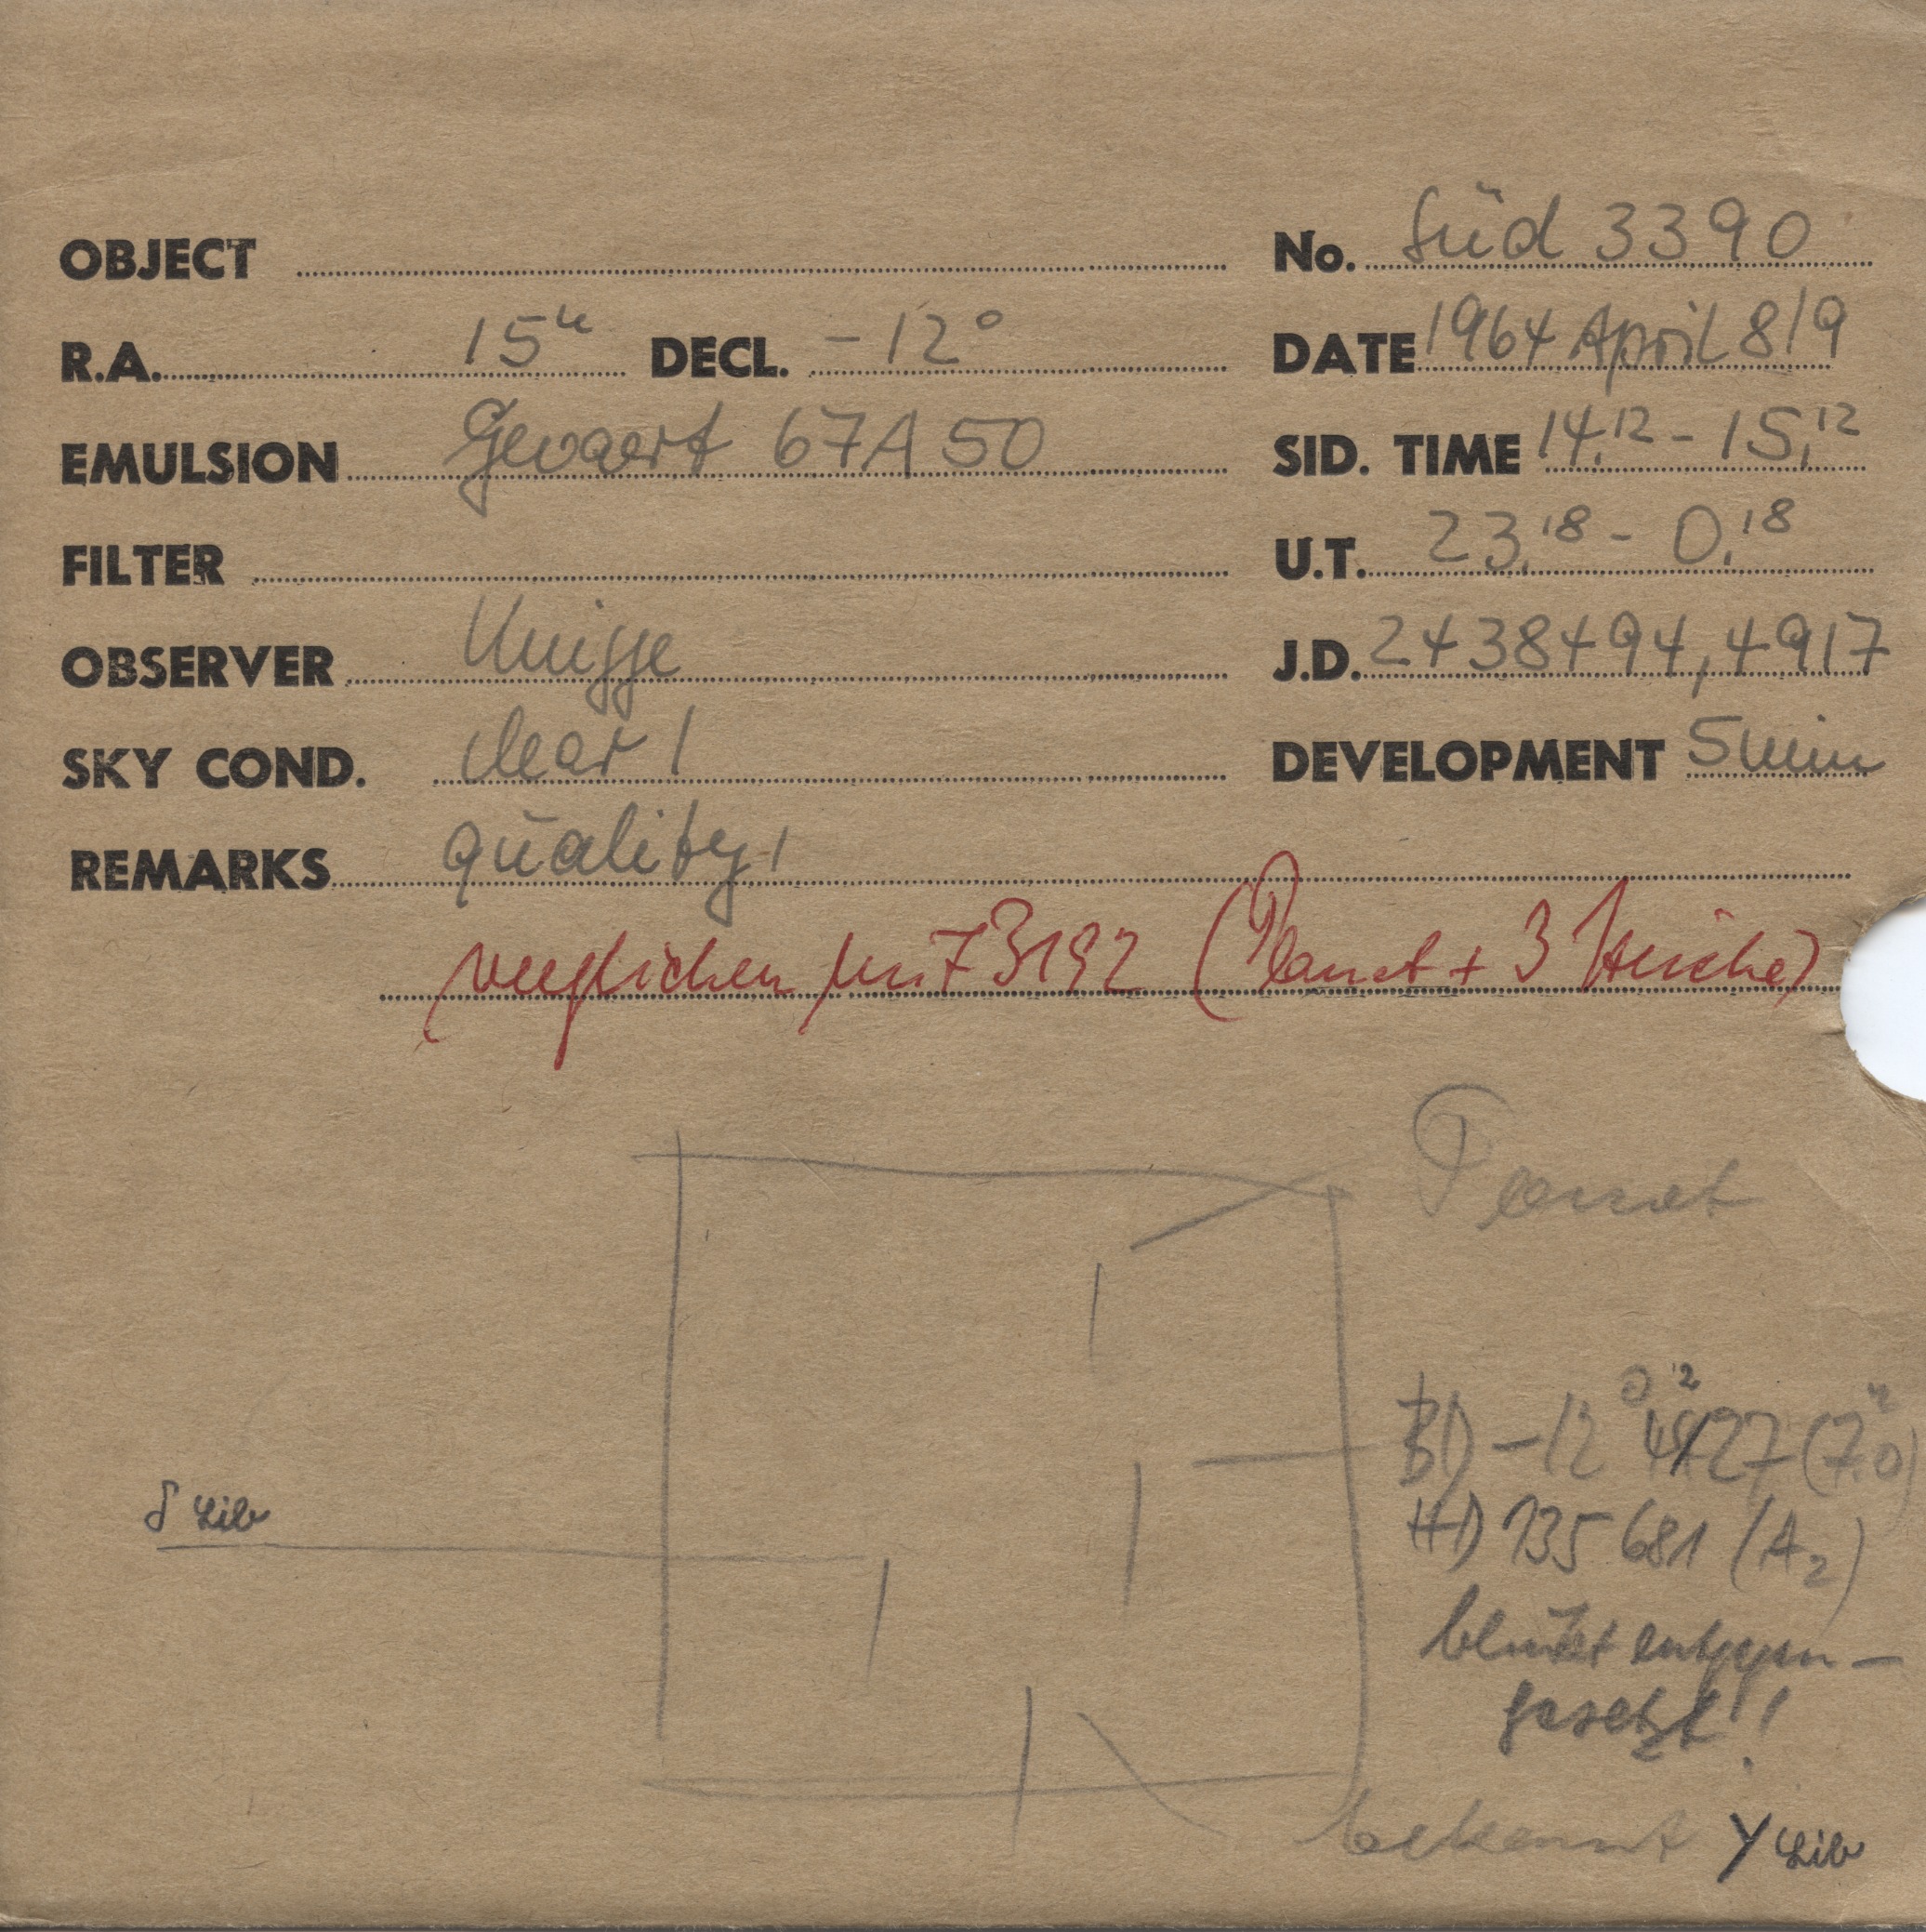 OBJECT No. Süd 3390
R.A. 15h DECL. -12° DATE 1964 April 8/9
EMULSION Gevaert 67A50 SID. TIME 14.12 - 15.12
FILTER U.T. 23.18 - 0.18
OBSERVER Knigge J.D. 2438494,4917
SKY COND. clear 1 DEVELOPMENT 5 min
REMARKS quality 1
verglichen mit 3192 (Planet + 3 Striche)
Planet
BD -12° 4227 (7.0)
δ Lib
HD 135681 (A2)
blinkt entgegen-
gesetzt!
bekannt Y Lib